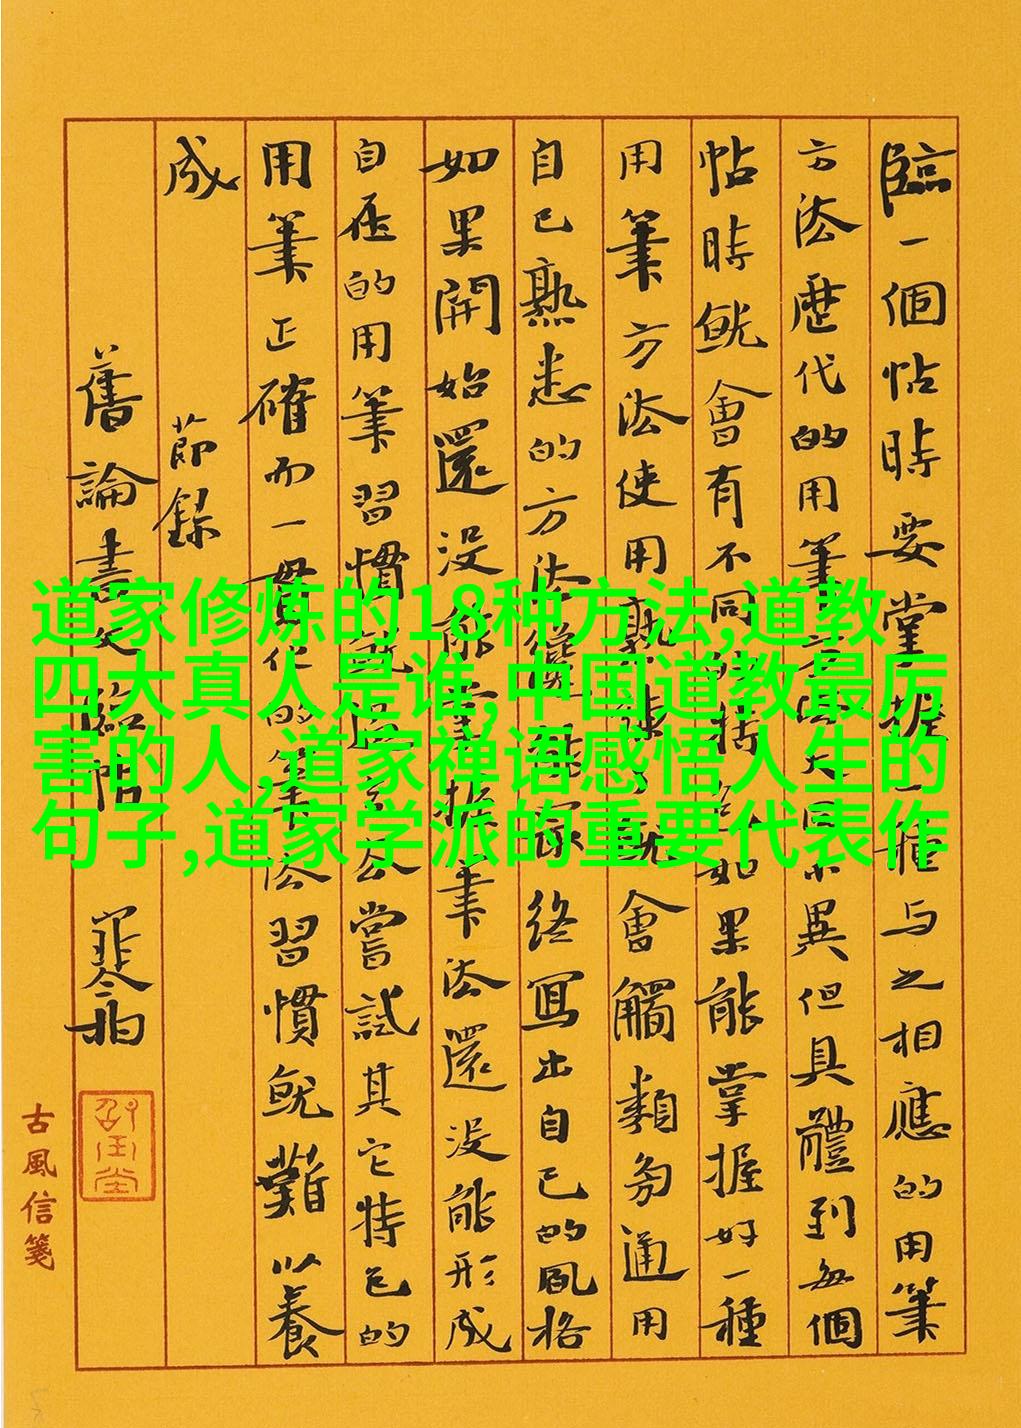 臨一個帖時要掌握一種与之相應的用筆
方法歷代的用筆大異但具體到每個
帖時就會有不同的如果能掌握好一種
用筆方法使用熟練了就會觸類旁通用
自己熟悉的方法終寫出自己的風格
如果開始還没能掌握筆法還没能形成
自在的用筆習慣就嘗試其它特色的
用筆正確而一貫化的筆法習慣就難以養
成 節錄
舊論書文臨帖
古風信箋
道家修炼的18种方法,道教
四大真人是谁,中国道教最厉
害的人,道家禅语感悟人生的
句子,道家学派的重要代表作